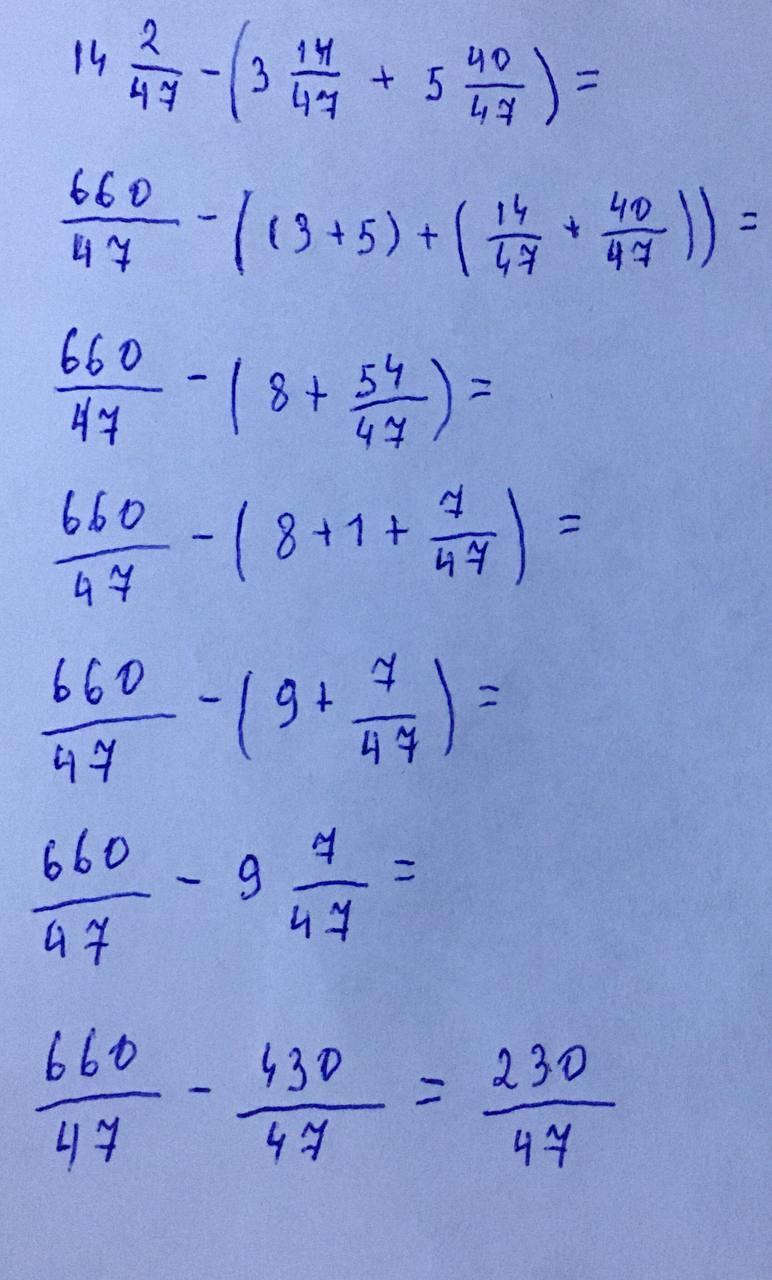 14 2/47 - (3 14/47 + 5 40/47) =
660/47 - ((3+5) + (14/47 + 40/47)) =
660/47 - (8 + 54/47) =
660/47 - (8+1+ 7/47) =
660/47 - (9+ 7/47) =
660/47 - 9 7/47 =
660/47 - 430/47 = 230/47